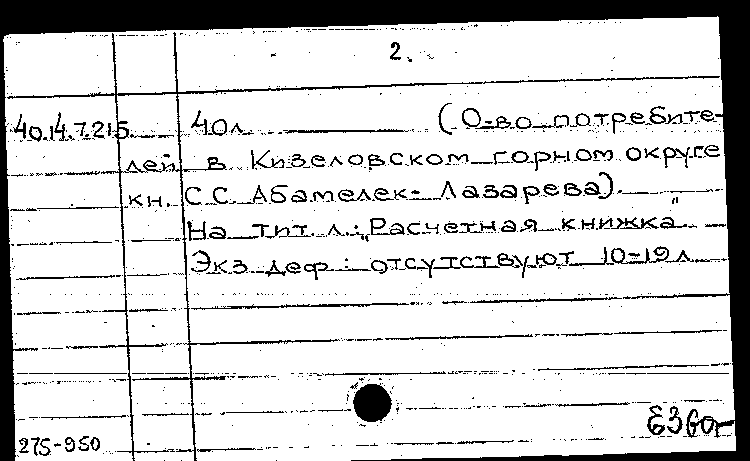 2.
40.14.7.215. 40л. (О-во потребите-
лей в Кизеловском горном округе
кн. С.С. Абамелек-Лазарева).
На тит. л.: „Расчетная книжка".
Экз. деф.: отсутствуют 10-19 л.
275-950